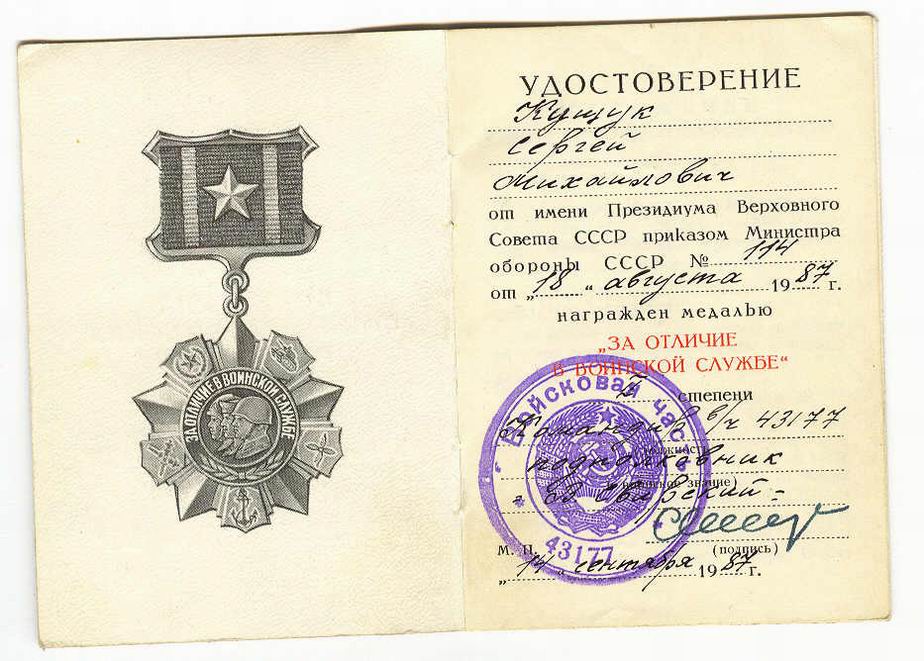 ЗА ОТЛИЧИЕ В ВОИНСКОЙ СЛУЖБЕ
УДОСТОВЕРЕНИЕ
Кущук
Сергей
Михайлович
от имени Президиума Верховного
Совета СССР приказом Министра
обороны СССР № 114
от „18“ августа 1987 г.
награжден медалью
„ЗА ОТЛИЧИЕ
В ВОИНСКОЙ СЛУЖБЕ“
степени
Командир в/ч 43177
(должность)
подполковник
(воинское звание)
Войсковая часть
43177
М. П.
(подпись)
„14“ сентября 1987 г.